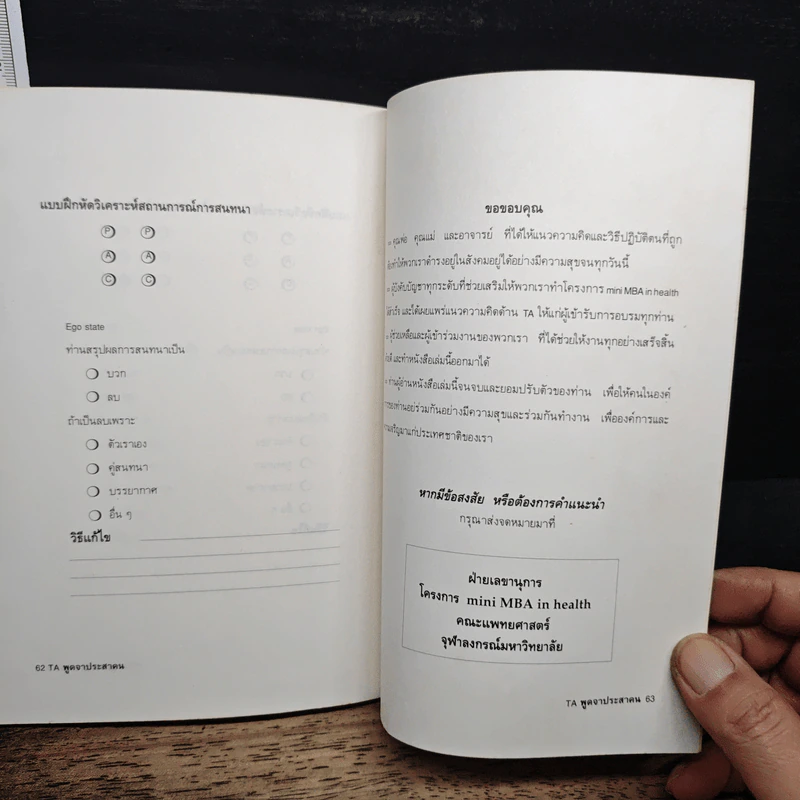 แบบฝึกหัดวิเคราะห์สถานการณ์การสนทนา
P P
A A
C C
Ego state
ท่านสรุปผลการสนทนาเป็น
บวก
ลบ
ถ้าเป็นลบเพราะ
ตัวเราเอง
คู่สนทนา
บรรยากาศ
อื่น ๆ
วิธีแก้ไข
62 TA พูดจาประสาคน
ขอขอบคุณ
คุณพ่อ คุณแม่ และอาจารย์ ที่ได้ให้แนวความคิดและวิธีปฏิบัติตนที่ถูก
ทำให้พวกเราดำรงอยู่ในสังคมอยู่ได้อย่างมีความสุขจนทุกวันนี้
ผู้บังคับบัญชาทุกระดับที่ช่วยเสริมให้พวกเราทำโครงการ mini MBA in health
และได้เผยแพร่แนวความคิดด้าน TA ให้แก่ผู้เข้ารับการอบรมทุกท่าน
ผู้ช่วยเหลือและผู้เข้าร่วมงานของพวกเรา ที่ได้ช่วยให้งานทุกอย่างเสร็จสิ้น
และทำหนังสือเล่มนี้ออกมาได้
ท่านผู้อ่านหนังสือเล่มนี้จนจบและยอมปรับตัวของท่าน เพื่อให้คนในองค์
ของท่านอยู่ร่วมกันอย่างมีความสุขและร่วมกันทำงาน เพื่อองค์การและ
แก่ประเทศชาติของเรา
หากมีข้อสงสัย หรือต้องการคำแนะนำ
กรุณาส่งจดหมายมาที่
ฝ่ายเลขานุการ
โครงการ mini MBA in health
คณะแพทยศาสตร์
จุฬาลงกรณ์มหาวิทยาลัย
TA พูดจาประสาคน 63